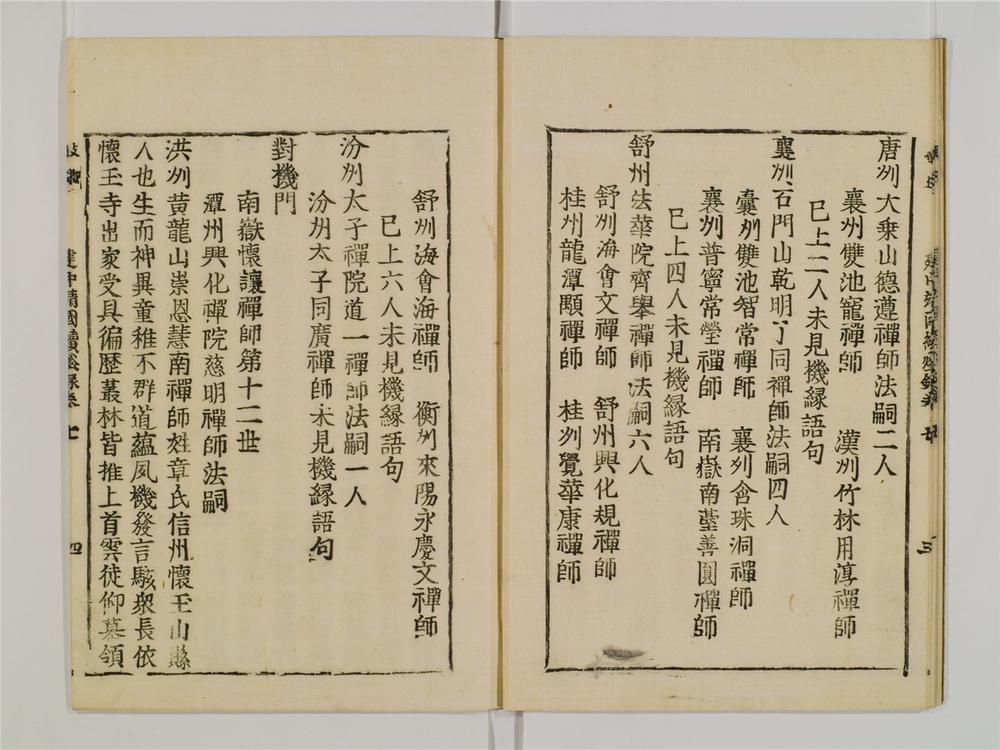 唐州大乗山德遵禪師法嗣二人
襄州雙池寵禪師　漢州竹林用淳禪師
已上二人未見機緣語句
襄州石門山乾明了同禪師法嗣四人
襄州雙池智常禪師　襄州含珠洞禪師
襄州普寧常瑩禪師　南嶽南臺善圓禪師
已上四人未見機緣語句
舒州法華院齊舉禪師法嗣六人
舒州海會文禪師　舒州興化規禪師
桂州龍潭顒禪師　桂州覺華康禪師
三
舒州海會海禪師　衡州來陽永慶文禪師
已上六人未見機緣語句
汾州太子禪院道一禪師法嗣一人
汾州太子同廣禪師未見機緣語句
對機門
南嶽懷讓禪師第十二世
潭州興化禪院慈明禪師法嗣
洪州黃龍山崇恩慧南禪師姓章氏信州懷玉山縣
人也生而神異童稚不群道蘊夙機發言駭衆長依
懷玉寺出家受具徧歷叢林皆推上首雲徒仰慕領
建中靖國續燈録卷七
四